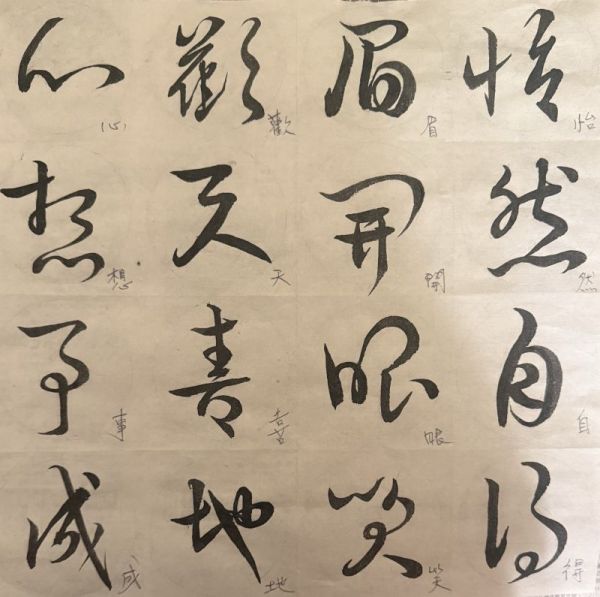 怡然自得
怡然自得
眉開眼笑
眉開眼笑
歡天喜地
歡天喜地
心想事成
心想事成